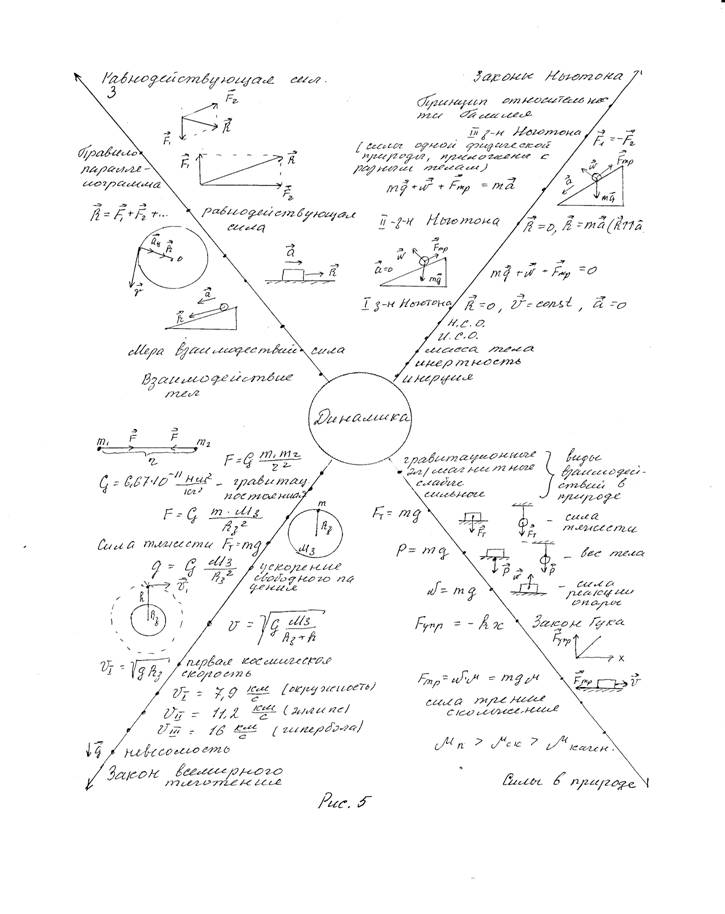 Равнодействующая сил.
3
F₂
F₁
R
Правило
паралле-
лограмма
F₁
R
F₂
R = F₁ + F₂ + ...
равнодействующая
сила
R
o
a
R
a
R
Мера взаимодействий
сила
Взаимодействие
тел
Законы Ньютона
Принцип относительнос
ти Галилея
III з-н Ньютона
F₁ = -F₂
(силы одной физической
природы, приложение к
разным телам)
mg + N + Fтр = ma
N
Fтр
a
mg
II-з-н Ньютона
R = 0, R = ma (R↑↑a
N
Fтр
a=0
mg
mg + N + Fтр = 0
I з-н Ньютона
R = 0, v = const, a = 0
Н.С.О.
И.С.О.
масса тела
инертность
инерция
Динамика
m₁
F
F
m₂
r
F = G m₁m₂/r²
G = 6,67·10⁻¹¹ нм²/кг² - гравитац
постоянная
F = G m·Mз/Rз²
m
Rз
Mз
Сила тяжести Fт = mg
g = G Mз/Rз²
ускорение
свободного па
дения
h
v₁
Rз
v = √(G Mз/(Rз+h))
vI = √(gRз)
первая космическая
скорость
vI = 7,9 км/с (окружность)
vII = 11,2 км/с (эллипс)
vIII = 16 км/с (гипербола)
g
невесомость
Закон всемирного
тяготения
гравитационные
эл/магнитные
слабые
сильные
виды
взаимодей-
ствий в
природе
Fт = mg
Fт
Fт
- сила
тяжести
P = mg
P
P
- вес тела
N = mg
N
- сила
реакции
опоры
Fупр = -kx
Закон Гука
Fупр
x
Fтр = N·μ = mgμ
Fтр
v
сила трения
скольжения
μп > μск > μкачен.
Силы в природе
Рис. 5